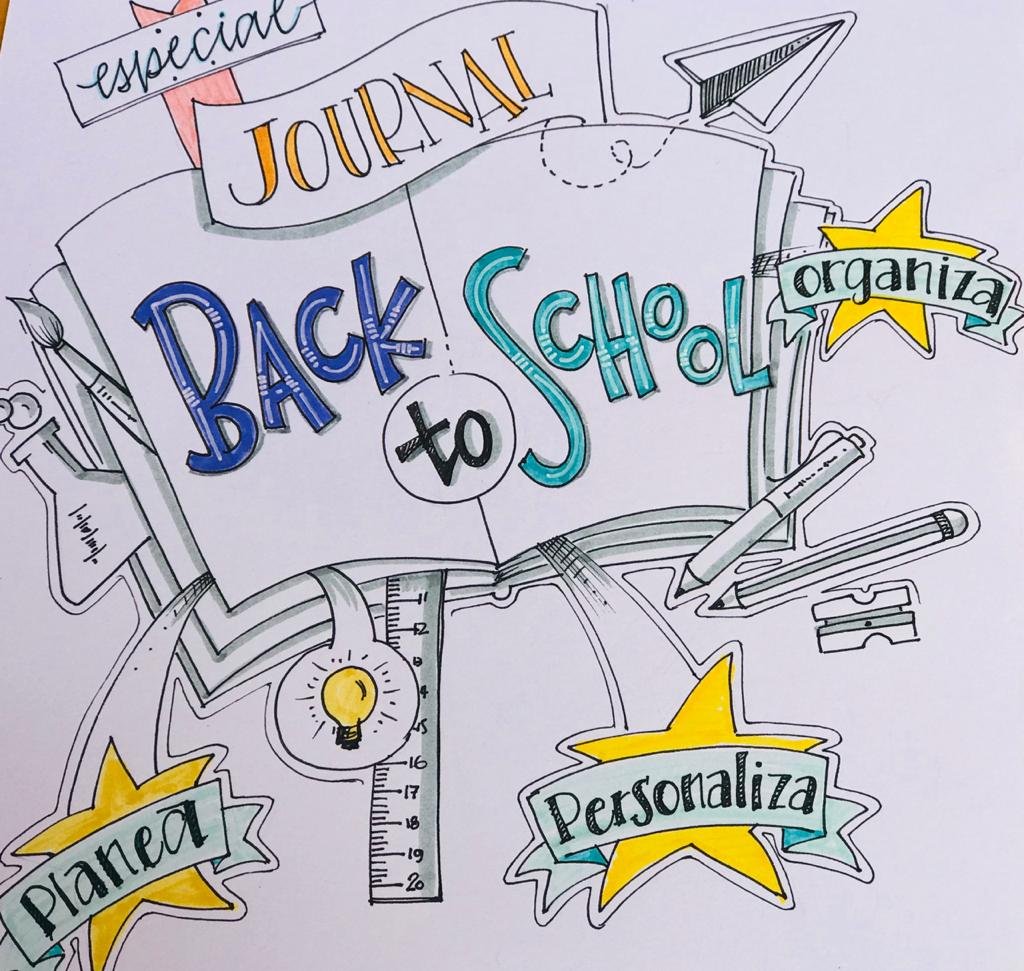 especial
JOURNAL
BACK
to
SCHOOL
organiza
Personaliza
Planea
11
12
15
16
17
18
19
20